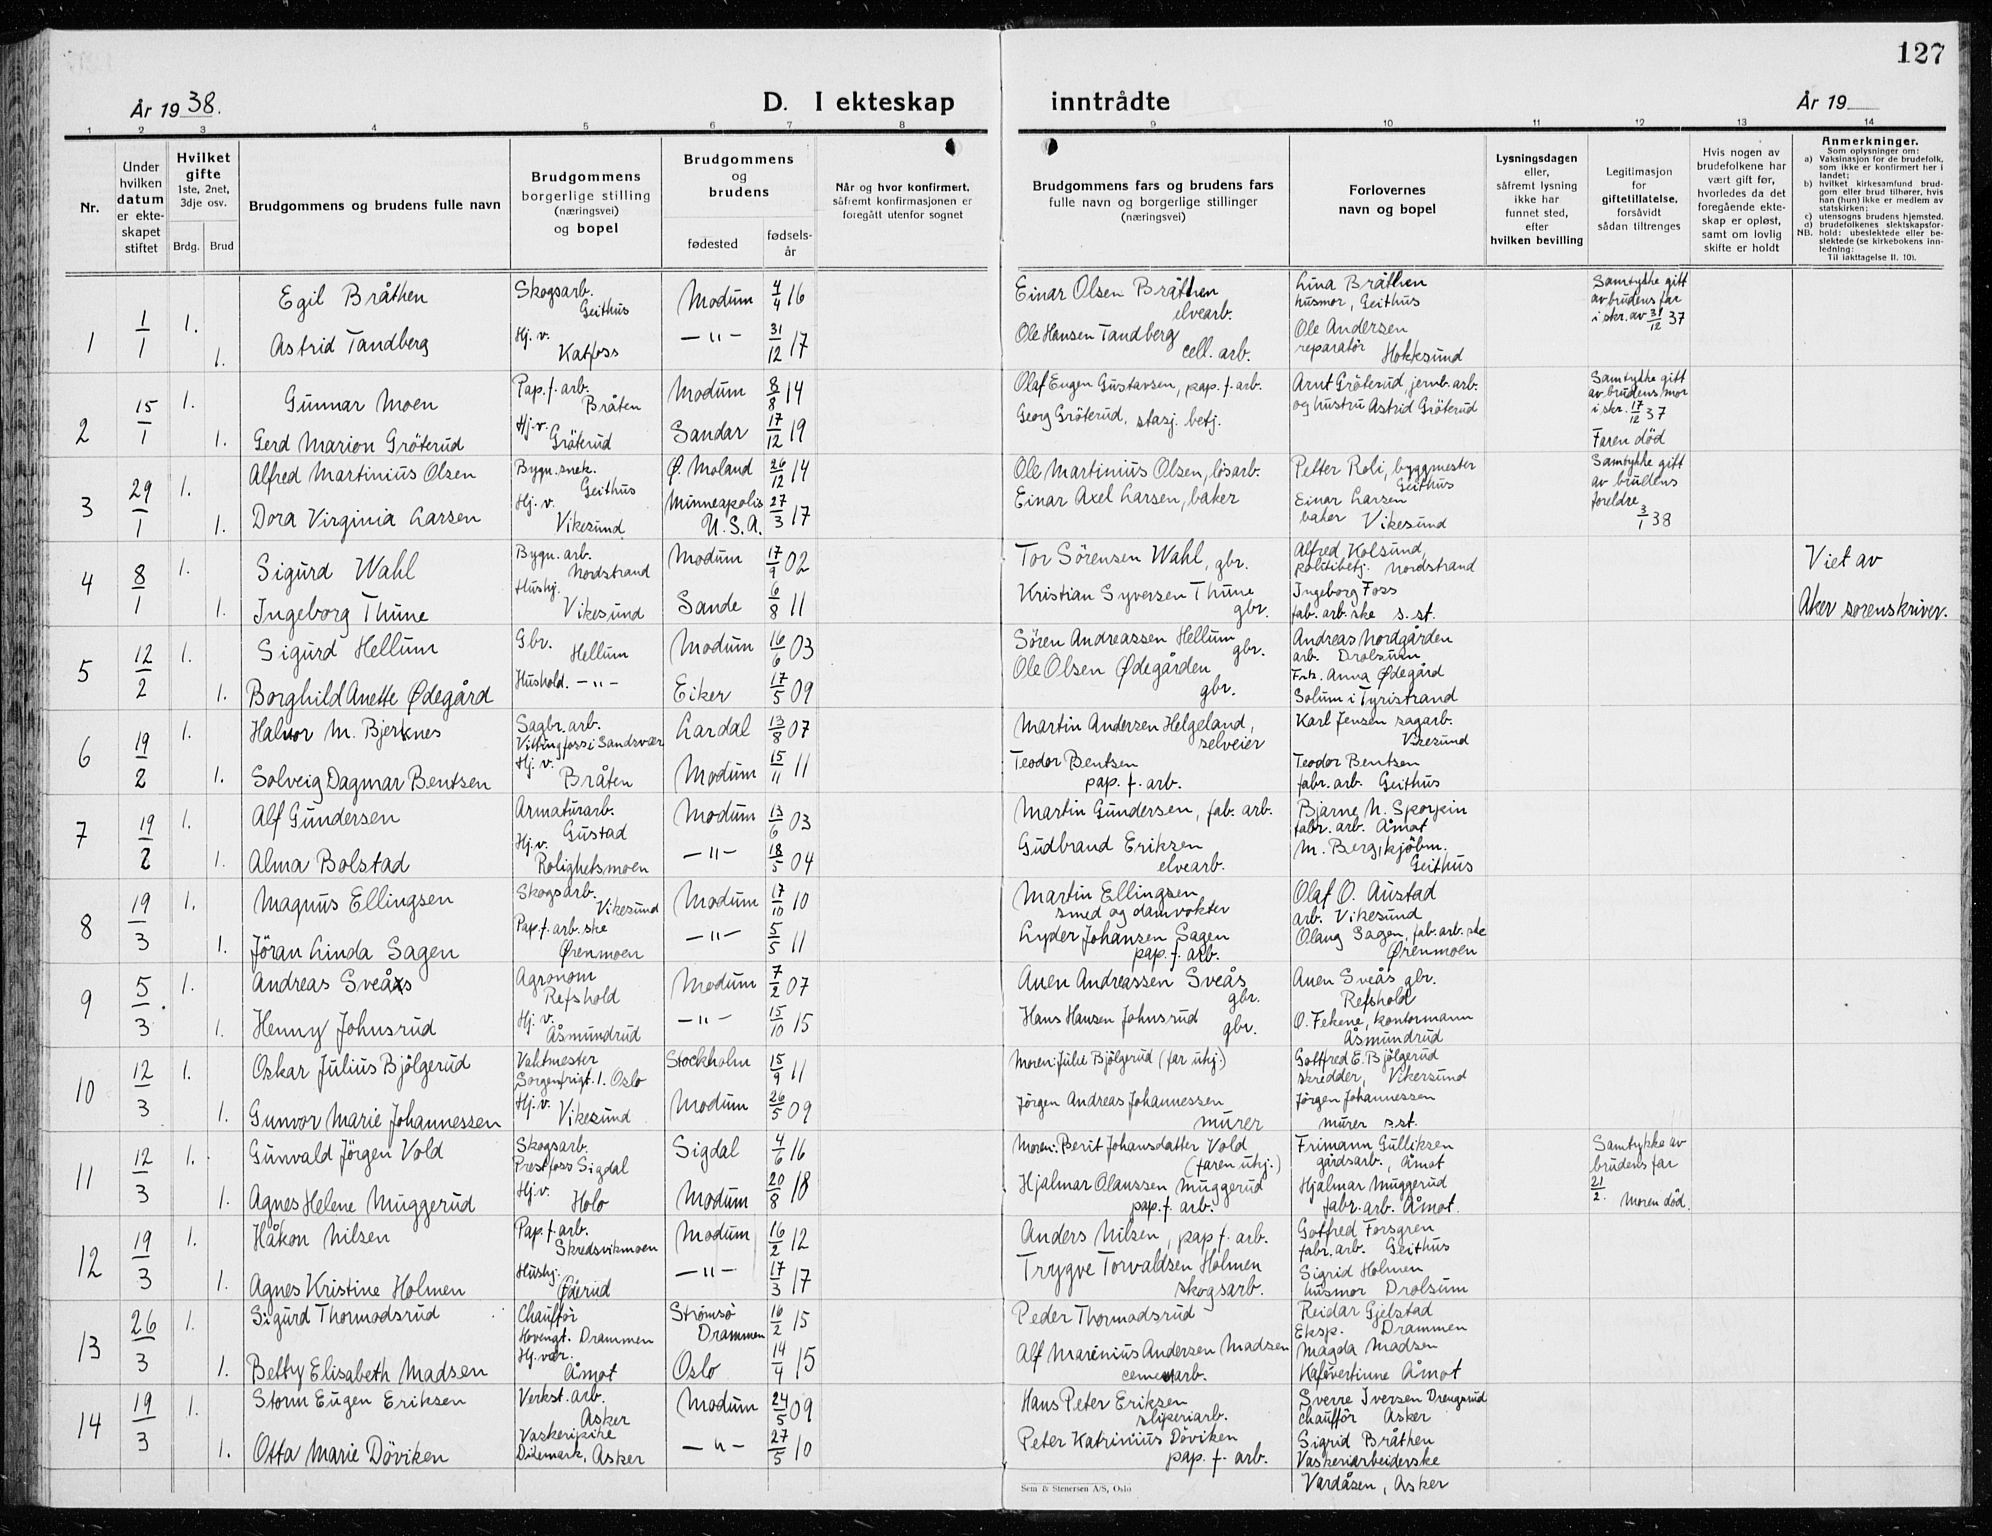 127
År 1938.
D. I ekteskap inntrådte
År 19
1 2 3 4 5 6 7 8 9 10 11 12 13 14
Nr.
Under
hvilken
datum
er ekte-
skapet
stiftet
Hvilket
gifte
1ste, 2net,
3dje osv.
Brdg. Brud
Brudgommens og brudens fulle navn
Brudgommens
borgerlige stilling
(næringsvei)
og bopel
Brudgommens
og
brudens
fødested
fødsels-
år
Når og hvor konfirmert,
såfremt konfirmasjonen er
foregått utenfor sognet
Brudgommens fars og brudens fars
fulle navn og borgerlige stillinger
(næringsvei)
Forlovernes
navn og bopel
Lysningsdagen
eller,
såfremt lysning
ikke har
funnet sted,
efter
hvilken bevilling
Legitimasjon
for
giftetillatelse,
forsåvidt
sådan tiltrenges
Hvis nogen av
brudefolkene har
vært gift før,
hvorledes da det
foregående ekte-
skap er opløst,
samt om lovlig
skifte er holdt
Anmerkninger.
Som oplysninger om:
a) Vaksinasjon for de brudefolk,
som ikke er konfirmert her i
landet;
b) hvilket kirkesamfund brud-
gom eller brud tilhører, hvis
han (hun) ikke er medlem av
statskirken;
c) utensogns brudens hjemsted.
d) brudefolkenes slektskapsfor-
NB. hold: ubeslektede eller be-
slektede (se kirkebokens inn-
ledning:
Til iakttagelse II. 10).
1 1/1 1. Egil Bråthen Skogsarb. Geithus Modum 4/4 16 Einar Olsen Bråthen elvearb. Lina Bråthen husmor, Geithus Samtykke gitt av brudens far i skr. av 31/12 37
1. Astrid Tandberg Hj. v. Katfoss —"— 31/12 17 Ole Hansen Tandberg cell. arb. Ole Andersen reparatør Hokksund
2 15/1 1. Gunnar Moen Pap. f. arb. Bråten Modum 8/8 14 Olaf Eugen Gustavsen, pap. f. arb. Arnt Gröterud, jernb. arb. Samtykke gitt av brudens mor i skr. 17/12 37 Faren död
1. Gerd Marion Gröterud Hj. v. Gröterud Sandar 17/12 19 Georg Gröterud, stasj. betj. og hustru Astrid Gröterud
3 29/1 1. Alfred Martinius Olsen Bygn. snek. Geithus Ø. Moland 26/12 14 Ole Martinius Olsen, lösarb. Petter Roli, byggmester Geithus Samtykke gitt av brudens foreldre 3/1 38
1. Dora Virginia Larsen Hj. v. Vikesund Minneapolis U.S.A. 27/3 17 Einar Axel Larsen, baker Einar Larsen baker Vikesund
4 8/1 1. Sigurd Wahl Bygn. arb. Nordstrand Modum 17/9 02 Tor Sörensen Wahl, gbr. Alfred Kolsund, politibetj. Nordstrand Viet av
1. Ingeborg Thune Hushj. Vikesund Sande 6/8 11 Kristian Syversen Thune gbr. Ingeborg Foss fab. arb. ske s. st. Aker sorenskriver.
5 12/2 1. Sigurd Hellum Gbr. Hellum Modum 16/6 03 Sören Andreassen Hellum gbr. Andreas Nordgården arb. Drolsum
1. Borghild Anette Ødegård Hushold. —"— Eiker 17/5 09 Ole Olsen Ødegården gbr. Frk. Anna Ødegård Solum i Tyristrand
6 19/2 1. Halvor M. Bjerknes Sagbr. arb. Vittingfoss i Sandsvær Lardal 13/8 07 Martin Andersen Helgeland, selveier Karl Jensen sagarb. Vikesund
1. Solveig Dagmar Bentsen Hj. v. Bråten Modum 15/11 11 Teodor Bentsen pap. f. arb. Teodor Bentsen fabr. arb. Geithus
7 19/2 1. Alf Gundersen Armaturarb. Gustad Modum 13/6 03 Martin Gundersen, fab. arb. Bjarne N. Skorpin fabr. arb. Åmot
1. Alma Bolstad Hj. v. Rolighetsmoen —"— 18/5 04 Gudbrand Eriksen elvearb. M. Berg, kjöbm. Geithus
8 19/3 1. Magnus Ellingsen Skogsarb. Vikesund Modum 17/10 10 Martin Ellingsen smed og damvokter Olaf O. Austad arb. Vikesund
1. Jöran Linda Sagen Pap. f. arb. ske Ørenmoen —"— 5/5 11 Lyder Johansen Sagen pap. f. arb. Olaug Sagen, fab. arb. ske Ørenmoen
9 5/3 1. Andreas Sveås Agronom Refshold Modum 7/2 07 Auen Andreassen Sveås gbr. Auen Sveås gbr. Refshold
1. Henny Johnsrud Hj. v. Åsmundrud —"— 15/10 15 Hans Hansen Johnsrud gbr. O. Fekene, kontormann Åsmundrud
10 12/3 1. Oskar Julius Bjölgerud Vaktmester Sorgenfrigt. 1. Oslo Stockholm 15/9 11 Moren: Julie Bjölgerud (far ukj.) Gottfred E. Bjölgerud skredder, Vikersund
1. Gunvor Marie Johannessen Hj. v. Vikesund Modum 26/5 09 Jörgen Andreas Johannessen murer Jörgen Johannessen murer s.st.
11 12/3 1. Gunvald Jörgen Vold Skogsarb. Prestfoss Sigdal Sigdal 4/6 16 Moren: Berit Johansdatter Vold (faren ukj.) Frimann Gulliksen gårdsarb., Åmot Samtykke av brudens far 21/2. Moren död.
1. Agnes Helene Muggerud Hj. v. Holo Modum 20/8 18 Hjalmar Olaussen Muggerud pap. f. arb. Hjalmar Muggerud fabr. arb. Åmot.
12 19/3 1. Håkon Nilsen Pap. f. arb. Skredsvikmoen Modum 16/2 12 Anders Nilsen, pap f. arb. Gotfred Forsgren fabr. arb. Geithus
1. Agnes Kristine Holmen Hushj. Øderud —"— 17/3 17 Trygve Torvaldsen Holmen skogsarb. Sigrid Holmen husmor Drolsum
13 26/3 1. Sigurd Thormodsrud Chauffør Hovengt. Drammen Strømsö Drammen 16/2 15 Peder Thormodsrud Reidar Gjelstad Eksp. Drammen
1. Betty Elisabeth Madsen Hj. vær. Åmot Oslo 14/4 15 Alf Marenius Andersen Madsen cementarb. Magda Madsen Kafévertinne Åmot
14 19/3 1. Storm Eugen Eriksen Verkst. arb. Asker Modum 24/5 09 Hans Peter Eriksen sliperiarb. Sverre Iversen Drengsrud chauffør Asker
1. Otta Marie Döviken Vaskeripike Dikemark, Asker —"— 27/5 10 Peter Katrinius Döviken pap. f. arb. Sigrid Bråthen Vaskeriarbeiderske Vardåsen, Asker
Sem & Stenersen A/S, Oslo